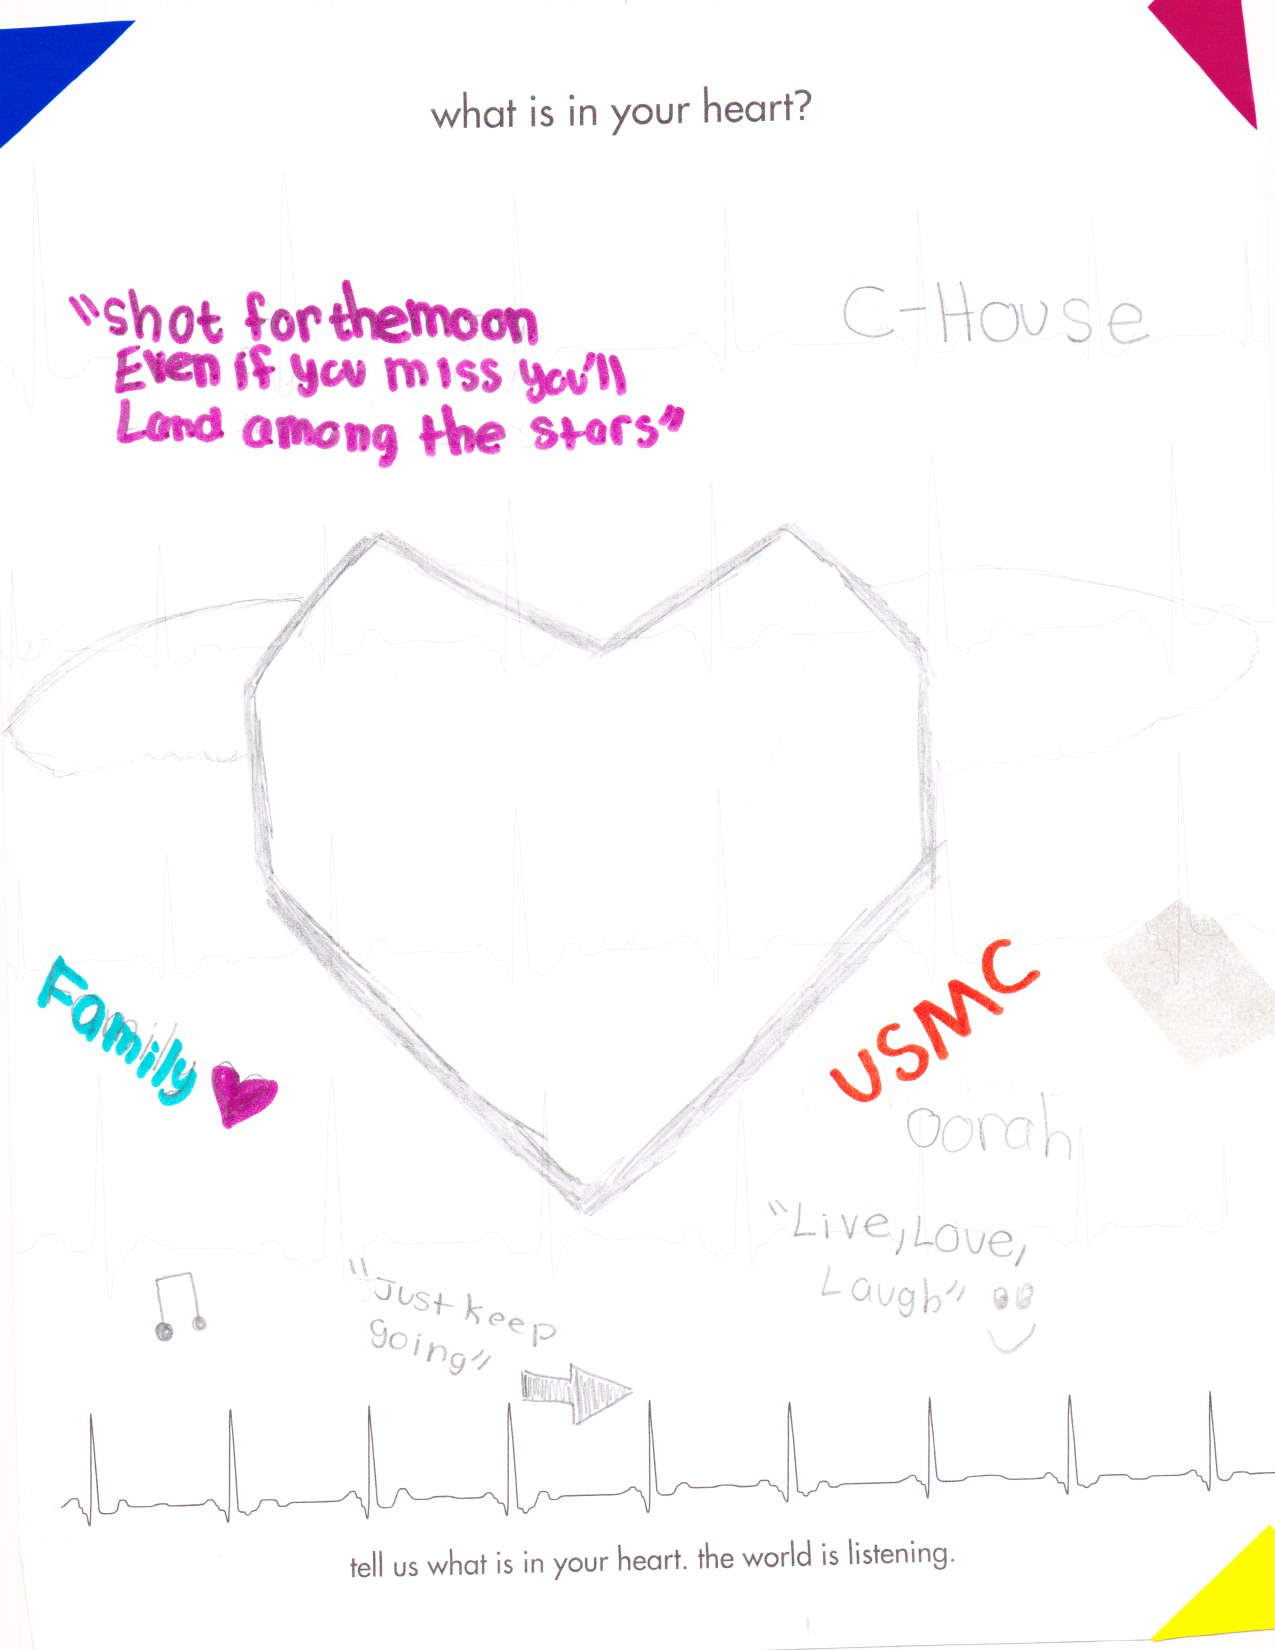 what is in your heart?
"Shot for the moon
Even if you miss you'll
Land among the stars"
C-House
Family
USMC
oorah
"Live, Love,
Laugh"
"Just keep
going"
tell us what is in your heart. the world is listening.